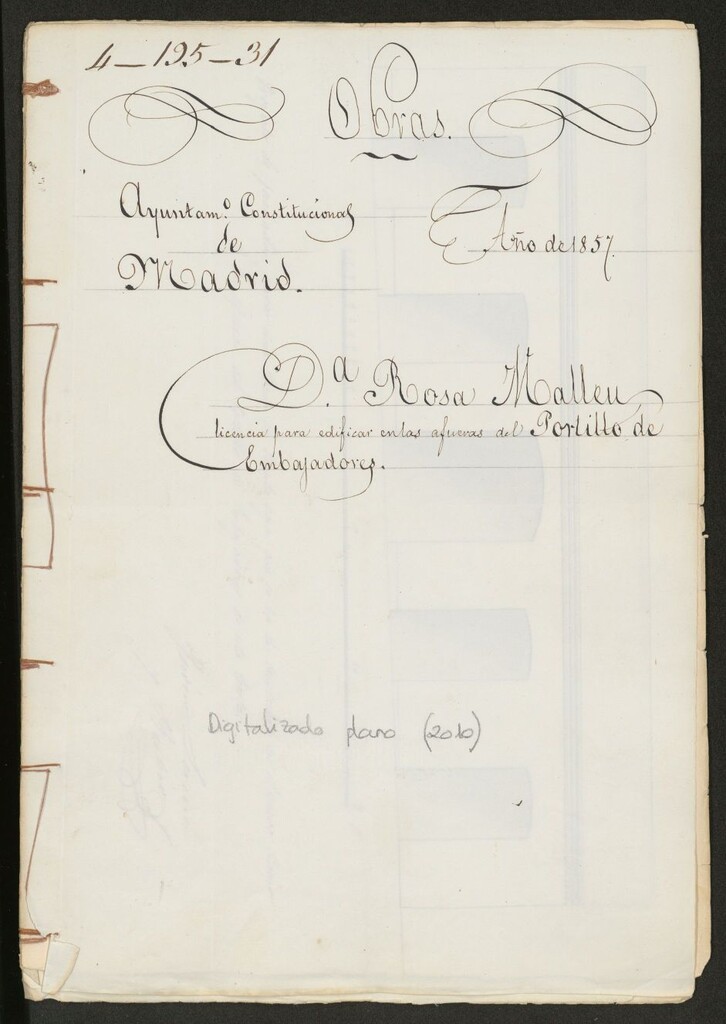 4-195-31
Obras.
Ayuntam.º Constitucional
de
Madrid.
Año de 1857.
D.ª Rosa Malleu
licencia para edificar en las afueras del Portillo de
Embajadores.
Digitalizado plano (2010)